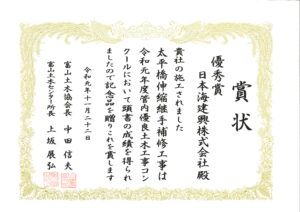 賞状
優秀賞
日本海建興株式会社 殿
貴社の施工されました
太平橋伸縮継手補修工事は
令和元年度管内優良土木工事コン
クールにおいて頭書の成績を得られ
ましたので記念品を贈りこれを賞します
令和元年十一月二十二日
富山土木協会長 中田信夫
富山土木センター所長 上坂展弘